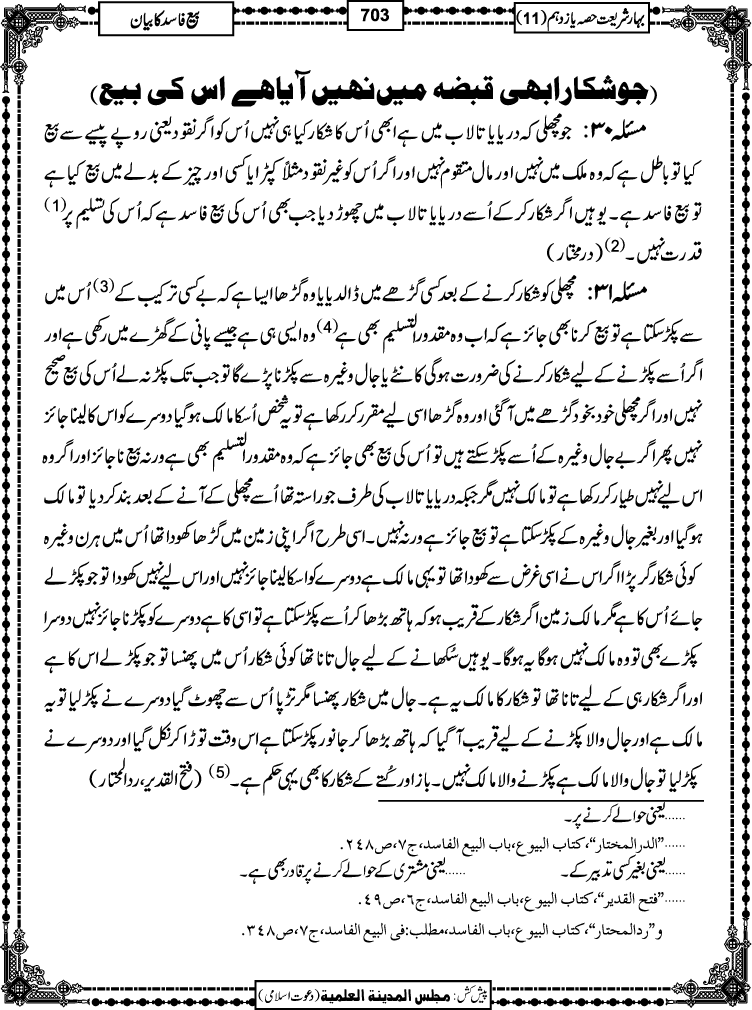 بہارِ شریعت حصہ یازدہم (11)
703
بیع فاسد کا بیان
(جو شکار ابھی قبضہ میں نہیں آیا ہے اس کی بیع)
مسئلہ ۳۰: جو مچھلی کہ دریا یا تالاب میں ہے ابھی اُس کا شکار کیا ہی نہیں اُس کو اگر نقود یعنی روپے پیسے سے بیع
کیا تو باطل ہے کہ وہ ملک میں نہیں اور مال متقوم نہیں اور اگر اُس کو غیر نقود مثلاً کپڑا یا کسی اور چیز کے بدلے میں بیع کیا ہے
تو بیع فاسد ہے۔ یوہیں اگر شکار کر کے اُسے دریا یا تالاب میں چھوڑ دیا جب بھی اُس کی بیع فاسد ہے کہ اُس کی تسلیم پر(1)
قدرت نہیں۔(2) (درمختار)
مسئلہ ۳۱: مچھلی کو شکار کرنے کے بعد کسی گڑھے میں ڈالدیا یا وہ گڑھا ایسا ہے کہ بے کسی ترکیب کے(3) اُس میں
سے پکڑ سکتا ہے تو بیع کرنا بھی جائز ہے کہ اب وہ مقدورالتسلیم بھی ہے(4) وہ ایسی ہی ہے جیسے پانی کے گھڑے میں رکھی ہے اور
اگر اُسے پکڑنے کے لیے شکار کرنے کی ضرورت ہوگی کانٹے یا جال وغیرہ سے پکڑنا پڑے گا تو جب تک پکڑ نہ لے اُس کی بیع صحیح
نہیں اور اگر مچھلی خود بخود گڑھے میں آگئی اور وہ گڑھا اسی لیے مقرر کر رکھا ہے تو یہ شخص اُسکا مالک ہوگیا دوسرے کو اس کا لینا جائز
نہیں پھر اگر بے جال وغیرہ کے اُسے پکڑ سکتے ہیں تو اُس کی بیع بھی جائز ہے کہ وہ مقدورالتسلیم بھی ہے ورنہ بیع ناجائز اور اگر وہ
اس لیے نہیں طیار کر رکھا ہے تو مالک نہیں مگر جبکہ دریا یا تالاب کی طرف جو راستہ تھا اُسے مچھلی کے آنے کے بعد بند کر دیا تو مالک
ہوگیا اور بغیر جال وغیرہ کے پکڑ سکتا ہے تو بیع جائز ہے ورنہ نہیں۔ اسی طرح اگر اپنی زمین میں گڑھا کھودا تھا اُس میں ہرن وغیرہ
کوئی شکار گر پڑا اگر اس نے اسی غرض سے کھودا تھا تو یہی مالک ہے دوسرے کو اسکا لینا جائز نہیں اور اس لیے نہیں کھودا تو جو پکڑ لے
جائے اُس کا ہے مگر مالک زمین اگر شکار کے قریب ہو کہ ہاتھ بڑھا کر اُسے پکڑ سکتا ہے تو اسی کا ہے دوسرے کو پکڑنا جائز نہیں دوسرا
پکڑے بھی تو وہ مالک نہیں ہوگا یہ ہوگا۔ یوہیں سُکھانے کے لیے جال تانا تھا کوئی شکار اُس میں پھنسا تو جو پکڑ لے اس کا ہے
اور اگر شکار ہی کے لیے تانا تھا تو شکار کا مالک یہ ہے۔ جال میں شکار پھنسا مگر تڑپا اُس سے چھوٹ گیا دوسرے نے پکڑ لیا تو یہ
مالک ہے اور جال والا پکڑنے کے لیے قریب آ گیا کہ ہاتھ بڑھا کر جانور پکڑ سکتا ہے اس وقت توڑا کر نکل گیا اور دوسرے نے
پکڑ لیا تو جال والا مالک ہے پکڑنے والا مالک نہیں۔ باز اور کُتے کے شکار کا بھی یہی حکم ہے۔(5) (فتح القدیر، ردالمحتار)
......یعنی حوالے کرنے پر۔
......"الدرالمختار"، کتاب البیوع، باب البیع الفاسد، ج۷، ص۲۴۸.
......یعنی بغیر کسی تدبیر کے۔ ......یعنی مشتری کے حوالے کرنے پر قادر بھی ہے۔
......"فتح القدیر"، کتاب البیوع، باب البیع الفاسد، ج۶، ص۴۹.
و"ردالمحتار"، کتاب البیوع، باب البیع الفاسد، مطلب: فی البیع الفاسد، ج۷، ص۳۴۸.
پیش کش: مجلس المدینة العلمیة (دعوت اسلامی)